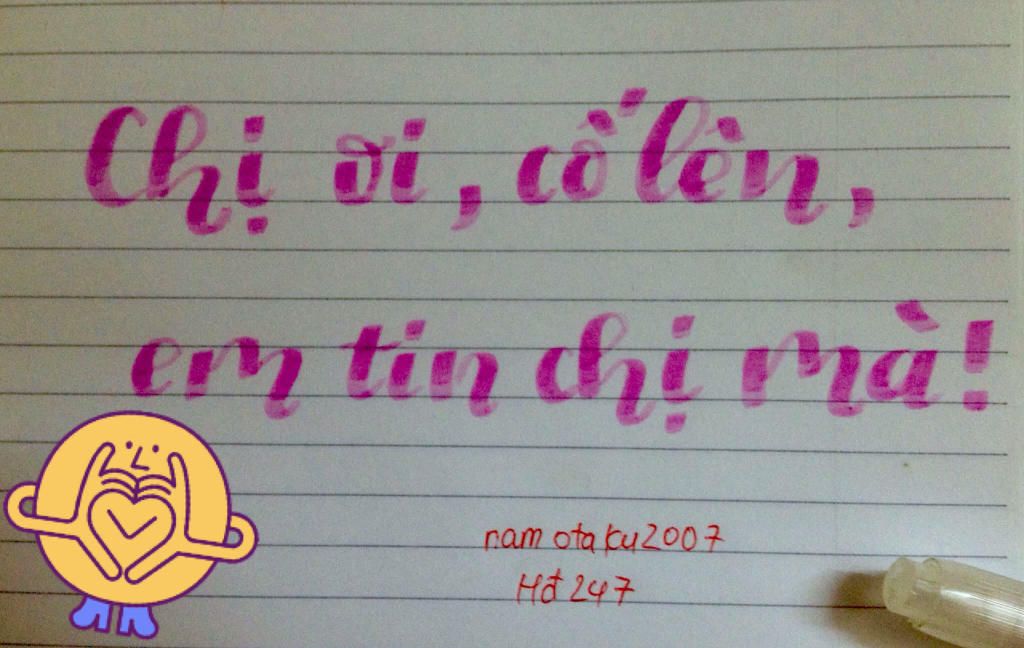 Chị ơi, cố lên,
em tin chị mà!
nam otaku2007
Hđ 247